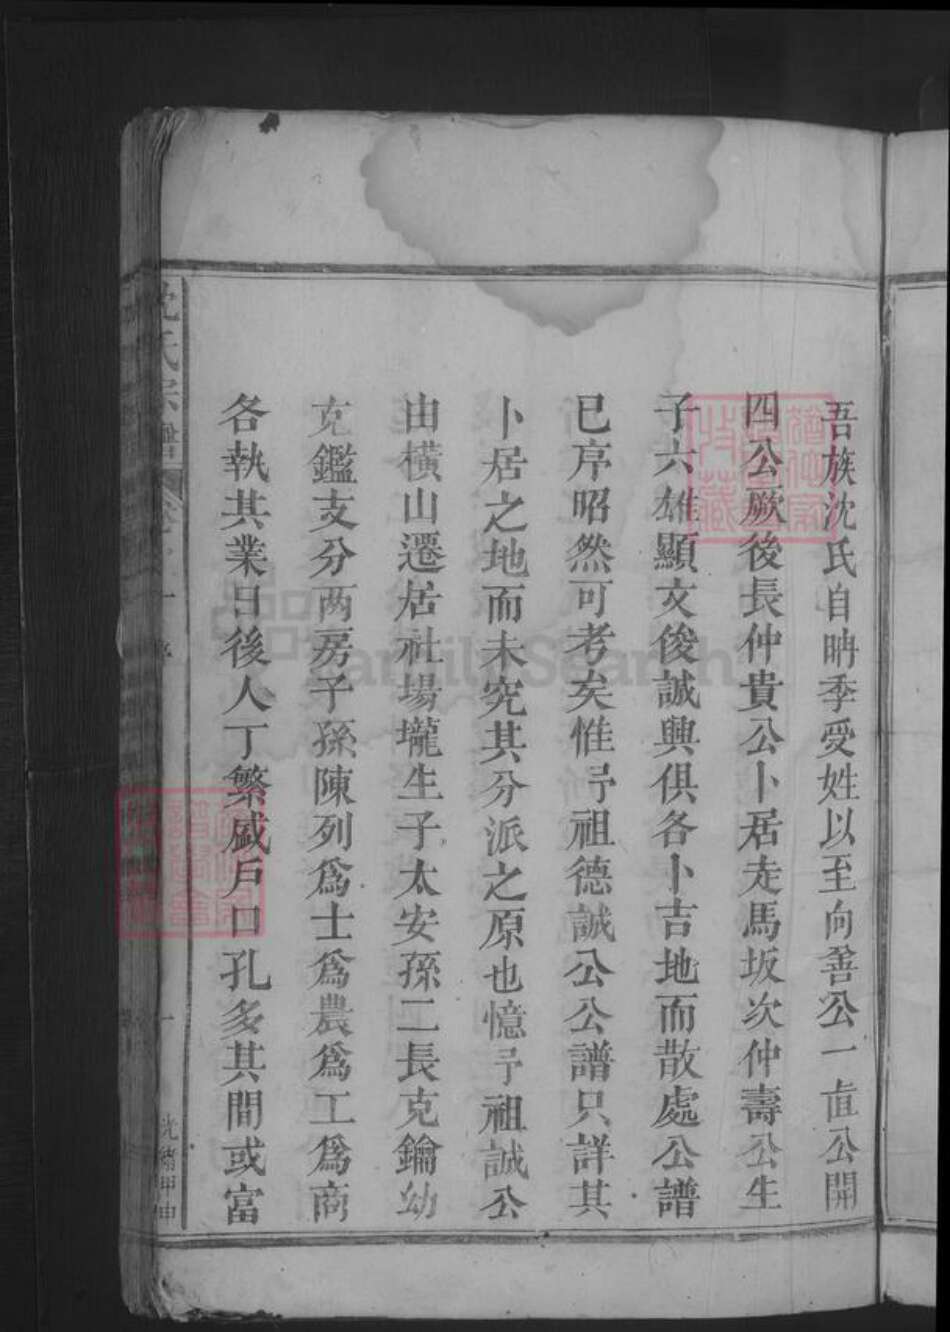 吾族沈氏自聃季受姓以至向善公一直公開
四公厥後長仲貴公卜居走馬坂次仲壽公生
子六雄顯文俊誠興俱各卜吉地而散處公譜
已序昭然可考矣惟予祖德誠公公譜只詳其
卜居之地而未究其分派之原也憶予祖誠公
由橫山遷居社場壠生子太安孫二長克鑰幼
克鑑支分两房子孫陳列為士為農為工為商
各執其業日後人丁繁盛戶口孔多其間或富
沈氏宗譜
一
光緒甲申
FamilySearch